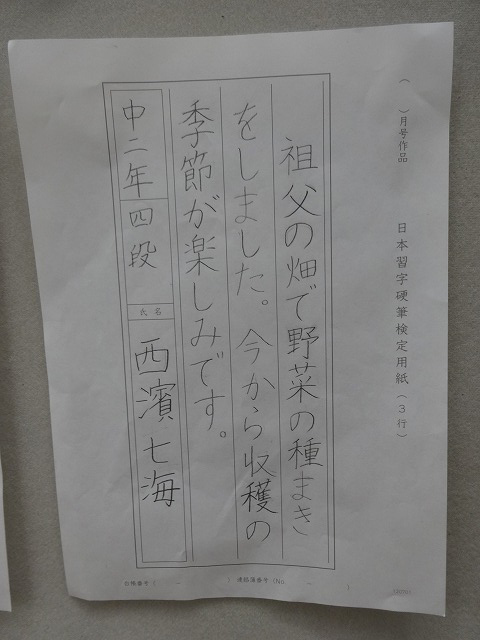 （　　）月号作品
日本習字硬筆検定用紙（３行）
祖父の畑で野菜の種まき
をしました。今から収穫の
季節が楽しみです。
中二年 四段
氏名
西濱七海